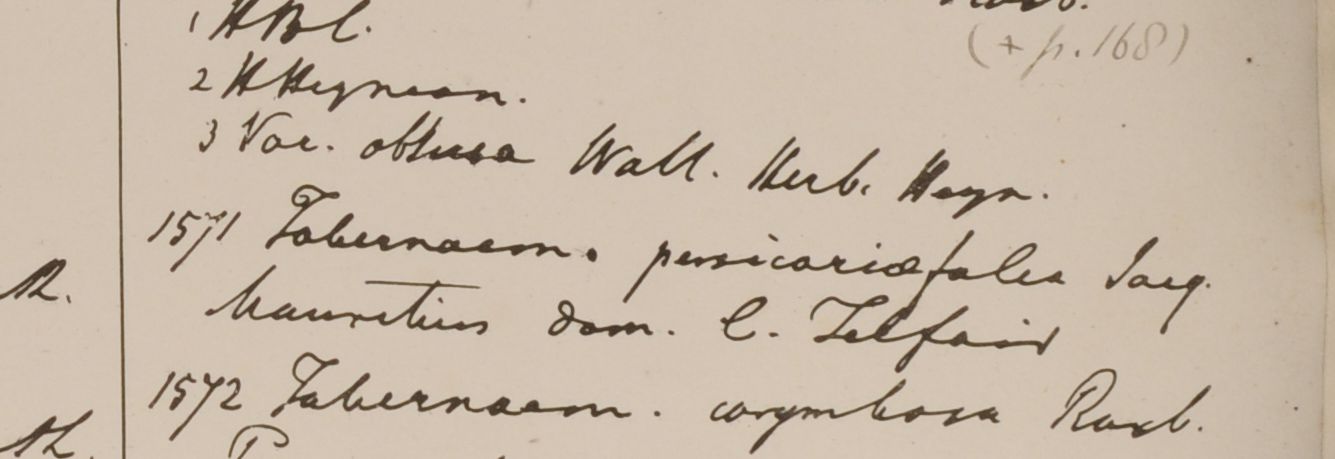 1 HBC.
(+ p. 168)
2 HHeynean.
3 Var. obtusa Wall. Herb. Heyn.
1571 Tabernaem. persicariæfolia Jacq.
Mauritius dom. C. Telfair
1572 Tabernaem. corymbosa Roxb.